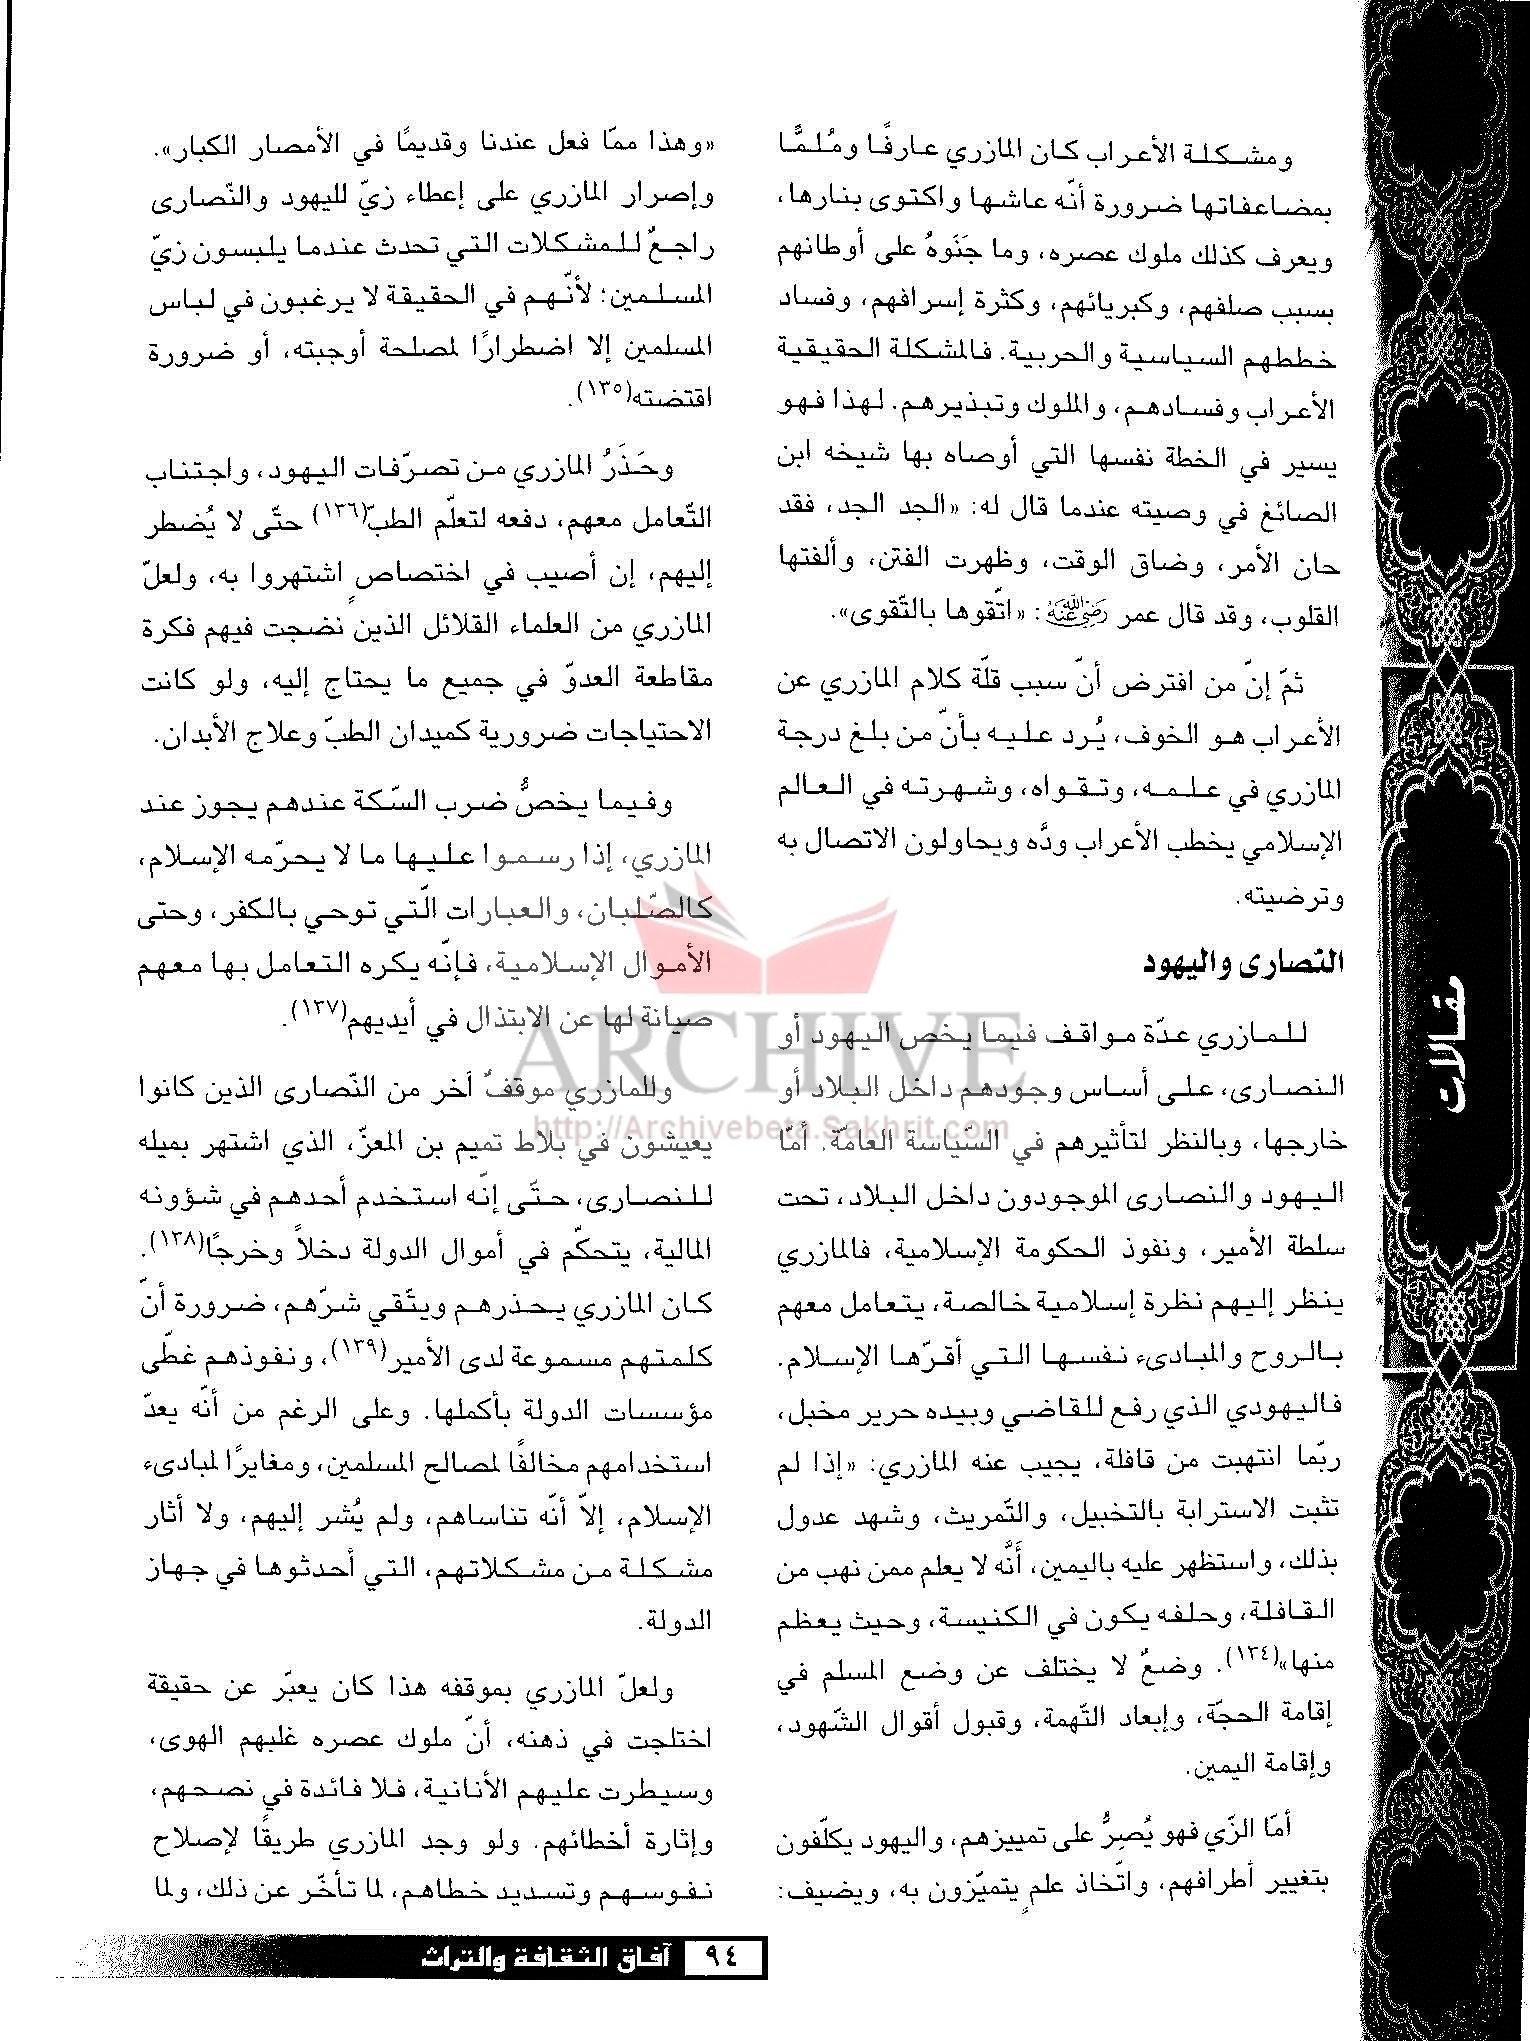 ومشكلة الأعراب كان المازري عارفًا ومُلمًّا
بمضاعفاتها ضرورة أنّه عاشها واكتوى بنارها،
ويعرف كذلك ملوك عصره، وما جَنَوهُ على أوطانهم
بسبب صلفهم، وكبريائهم، وكثرة إسرافهم، وفساد
خططهم السياسية والحربية. فالمشكلة الحقيقية
الأعراب وفسادهم، والملوك وتبذيرهم. لهذا فهو
يسير في الخطة نفسها التي أوصاه بها شيخه ابن
الصائغ في وصيته عندما قال له: «الجد الجد، فقد
حان الأمر، وضاق الوقت، وظهرت الفتن، وألفتها
القلوب، وقد قال عمر رضي الله عنه: «اتّقوها بالتّقوى».
ثمّ إنّ من افترض أنّ سبب قلّة كلام المازري عن
الأعراب هو الخوف، يُرد عليه بأنّ من بلغ درجة
المازري في علمه، وتقواه، وشهرته في العالم
الإسلامي يخطب الأعراب ودَّه ويحاولون الاتصال به
وترضيته.
النصارى واليهود
للمازري عدّة مواقف فيما يخص اليهود أو
النصارى، على أساس وجودهم داخل البلاد أو
خارجها، وبالنظر لتأثيرهم في السّياسة العامّة. أمّا
اليهود والنصارى الموجودون داخل البلاد، تحت
سلطة الأمير، ونفوذ الحكومة الإسلامية، فالمازري
ينظر إليهم نظرة إسلامية خالصة، يتعامل معهم
بالروح والمبادىء نفسها التي أقرّها الإسلام.
فاليهودي الذي رفع للقاضي وبيده حرير مخبل،
ربّما انتهبت من قافلة، يجيب عنه المازري: «إذا لم
تثبت الاسترابة بالتخبيل، والتّمريث، وشهد عدول
بذلك، واستظهر عليه باليمين، أنَّه لا يعلم ممن نهب من
القافلة، وحلفه يكون في الكنيسة، وحيث يعظم
منها»(١٣٤). وضعٌ لا يختلف عن وضع المسلم في
إقامة الحجّة، وإبعاد التّهمة، وقبول أقوال الشّهود،
وإقامة اليمين.
أمّا الزّي فهو يُصِرُّ على تمييزهم، واليهود يكلّفون
بتغيير أطرافهم، واتّخاذ علمٍ يتميّزون به، ويضيف:
«وهذا ممّا فعل عندنا وقديمًا في الأمصار الكبار».
وإصرار المازري على إعطاء زيّ لليهود والنّصارى
راجعٌ للمشكلات التي تحدث عندما يلبسون زيّ
المسلمين؛ لأنّهم في الحقيقة لا يرغبون في لباس
المسلمين إلا اضطرارًا لمصلحة أوجبته، أو ضرورة
اقتضته(١٣٥).
وحَذَرُ المازري من تصرّفات اليهود، واجتناب
التّعامل معهم، دفعه لتعلّم الطبّ(١٣٦) حتّى لا يُضطر
إليهم، إن أصيب في اختصاصٍ اشتهروا به، ولعلّ
المازري من العلماء القلائل الذين نضجت فيهم فكرة
مقاطعة العدوّ في جميع ما يحتاج إليه، ولو كانت
الاحتياجات ضرورية كميدان الطبّ وعلاج الأبدان.
وفيما يخصُّ ضرب السّكة عندهم يجوز عند
المازري، إذا رسموا عليها ما لا يحرّمه الإسلام،
كالصّلبان، والعبارات الّتي توحي بالكفر، وحتى
الأموال الإسلامية، فإنّه يكره التعامل بها معهم
صيانة لها عن الابتذال في أيديهم(١٣٧).
وللمازري موقفٌ أخر من النّصارى الذين كانوا
يعيشون في بلاط تميم بن المعزّ، الذي اشتهر بميله
للنصارى، حتّى إنّه استخدم أحدهم في شؤونه
المالية، يتحكّم في أموال الدولة دخلاً وخرجًا(١٣٨).
كان المازري يحذرهم ويتّقي شرّهم، ضرورة أنّ
كلمتهم مسموعة لدى الأمير(١٣٩)، ونفوذهم غطّى
مؤسسات الدولة بأكملها. وعلى الرغم من أنّه يعدّ
استخدامهم مخالفًا لمصالح المسلمين، ومغايرًا لمبادىء
الإسلام، إلاّ أنّه تناساهم، ولم يُشر إليهم، ولا أثار
مشكلة من مشكلاتهم، التي أحدثوها في جهاز
الدولة.
ولعلّ المازري بموقفه هذا كان يعبّر عن حقيقة
اختلجت في ذهنه، أنّ ملوك عصره غلبهم الهوى،
وسيطرت عليهم الأنانية، فلا فائدة في نصحهم،
وإثارة أخطائهم. ولو وجد المازري طريقًا لإصلاح
نفوسهم وتسديد خطاهم، لما تأخّر عن ذلك، ولما
مقالات
ARCHIVE
http://Archivebeta.Sakhrit.com
٩٤ آفاق الثقافة والتراث